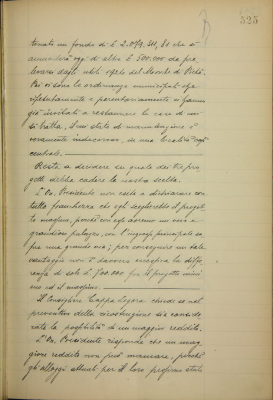 525
tonati un fondo di £ 2.079.311,80 che si
aumenterà oggi di altre £ 500.000 da pre-
levarsi dagli utili 1926 del Monte di Pietà.
Poi vi sono le ordinanze municipali che
ripetutamente e perentoriamente ci hanno
già invitati a restaurare le case di cui
si tratta, in uno stato di manutenzione
veramente indecoroso, in una località
centrale.
Resta a decidere su quale dei tre pro-
getti debba cadere la nostra scelta.
L'On. Presidente non esita a dichiarare con
tutta franchezza che egli sceglierebbe il proget-
to maggiore, perchè con esso avremo un vero e
grandioso palazzo, con l'ingresso principale so-
pra una grande via; per conseguire un tale
vantaggio non è davvero eccessiva la diffe-
renza di sole £ 700.000 fra il progetto mini-
mo ed il maggiore.
Il Consigliere Cappa Legora chiede se nel
preventivo della ricostruzione sia conside-
rata la possibilità di un maggior reddito.
L'On. Presidente risponde che un mag-
giore reddito non può mancare, perchè
gli alloggi attuali per il loro pessimo stato